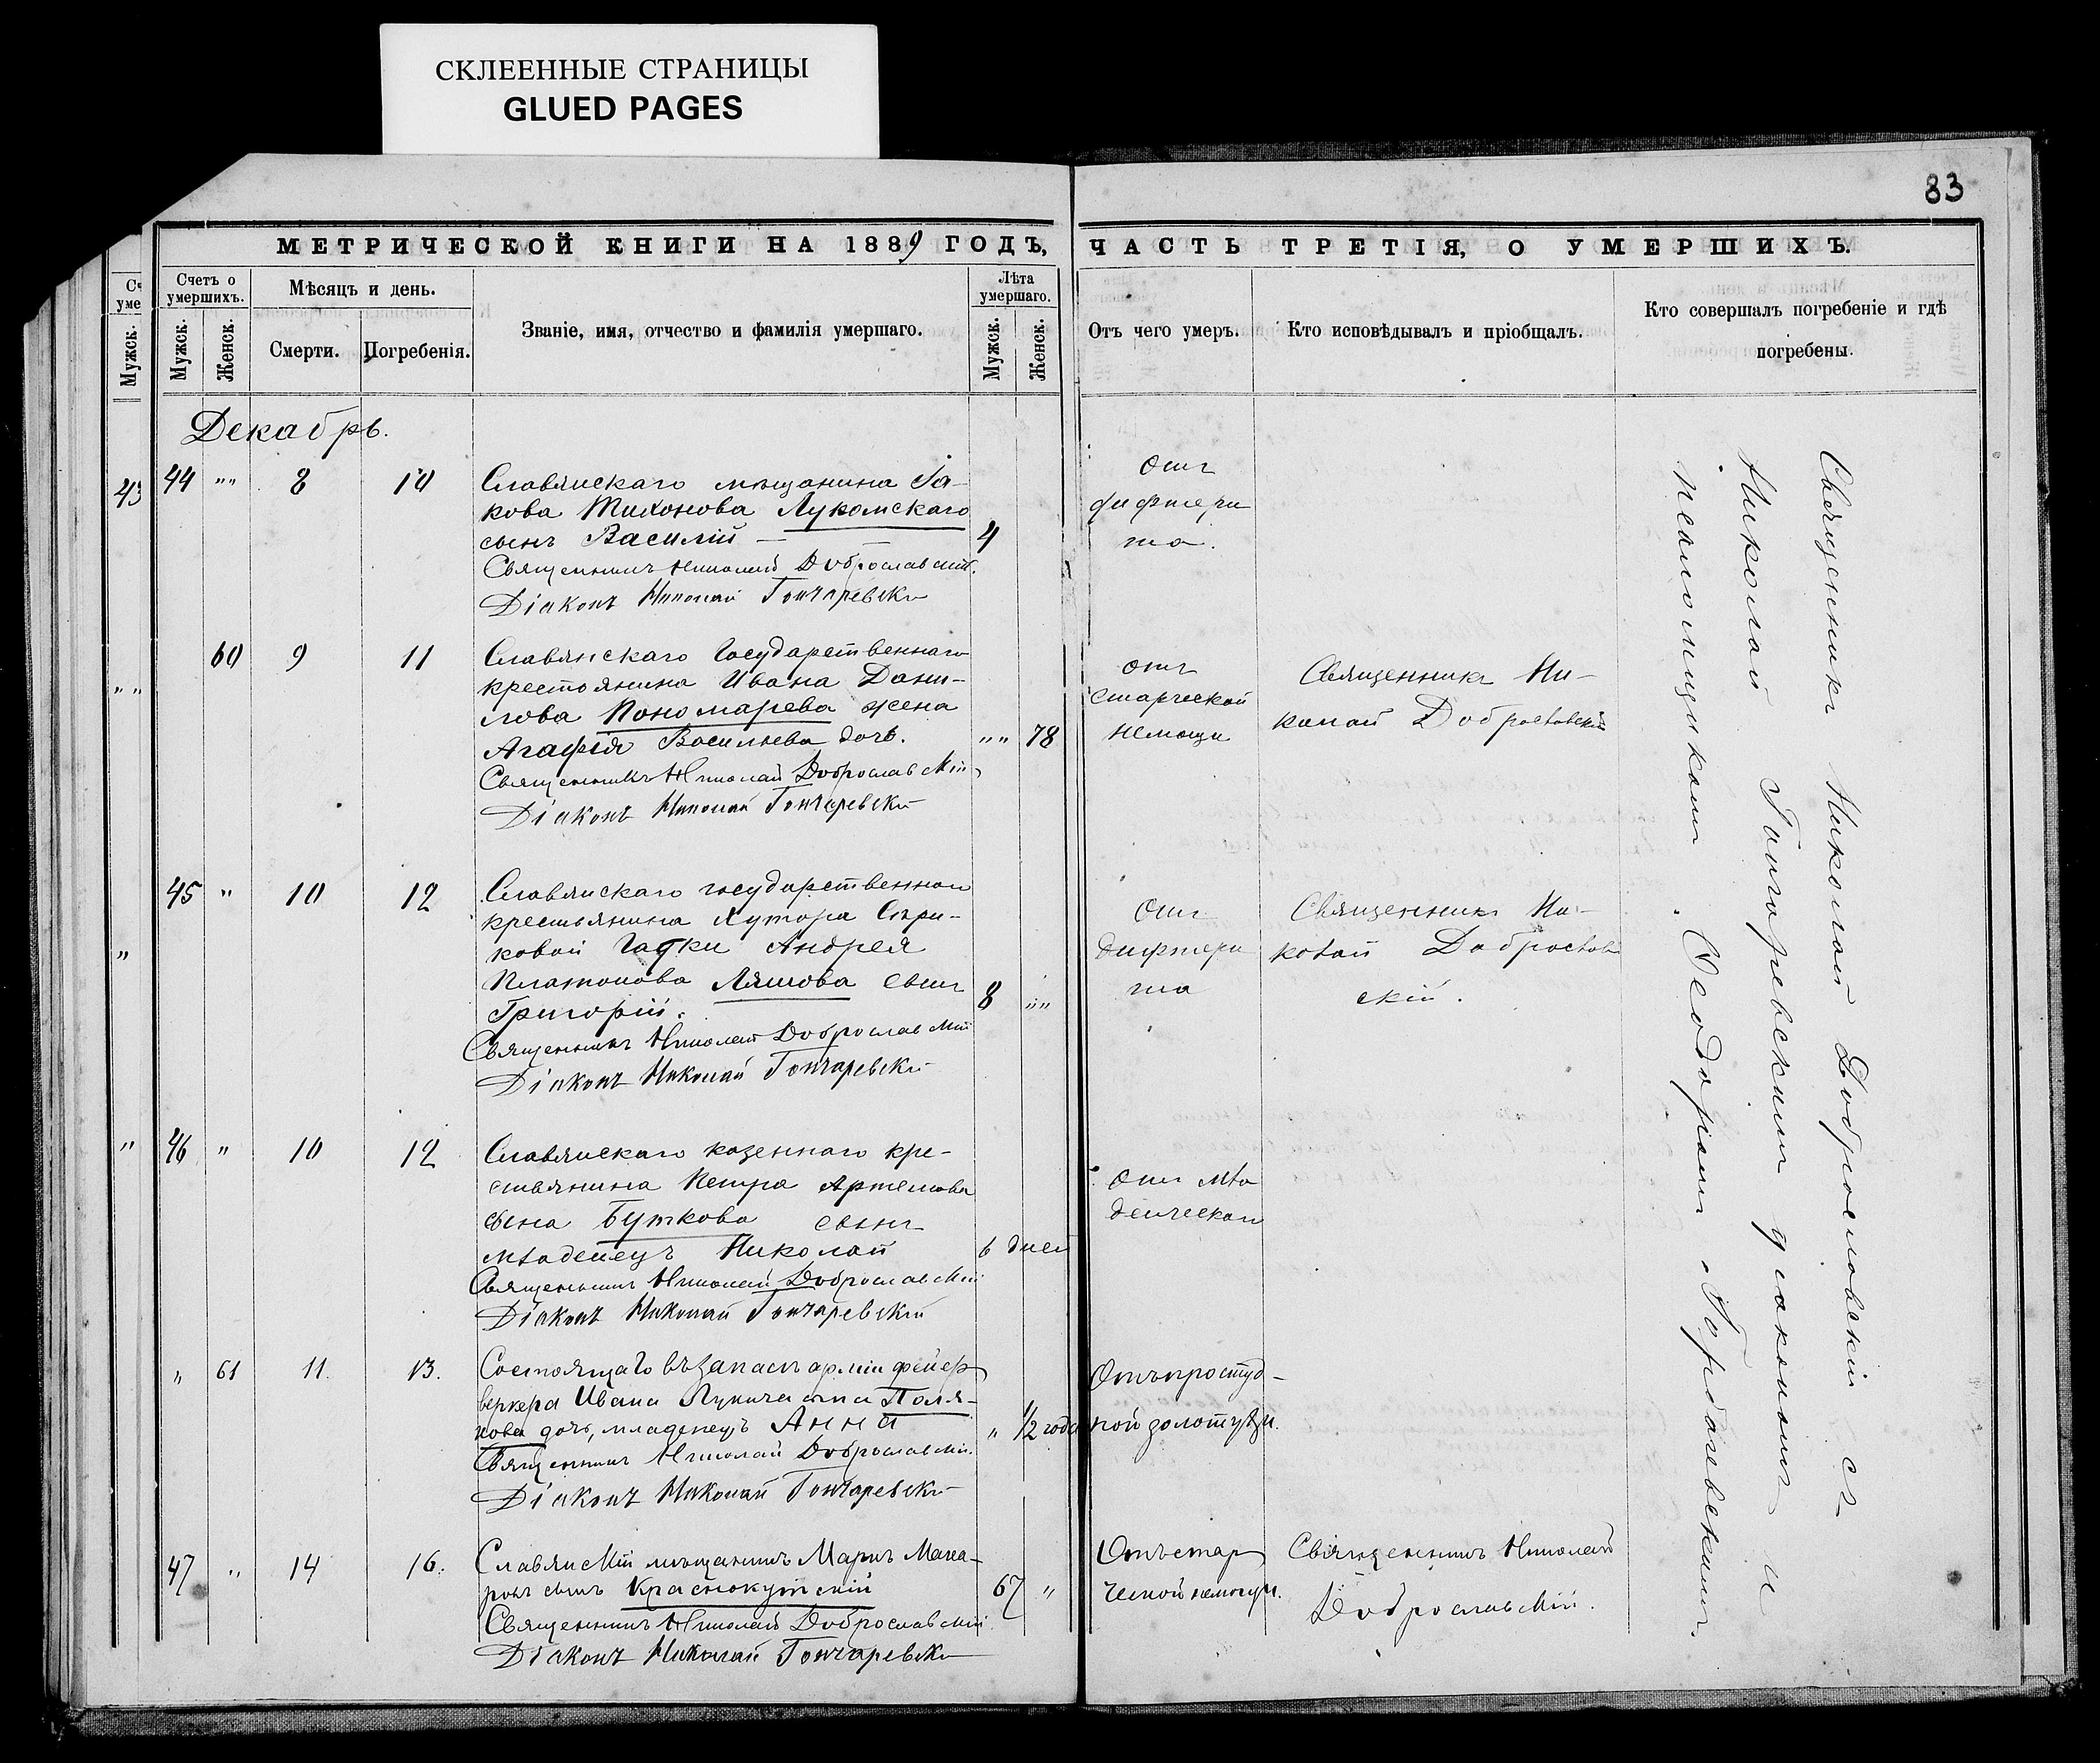 СКЛЕЕННЫЕ СТРАНИЦЫ
GLUED PAGES
83
МЕТРИЧЕСКОЙ КНИГИ НА 1889 ГОДЪ, ЧАСТЬ ТРЕТІЯ, О УМЕРШИХЪ.
Счетъ о умершихъ.
Мужск.
Женск.
Мѣсяцъ и день.
Смерти.
Погребенія.
Званіе, имя, отчество и фамилія умершаго.
Лѣта умершаго.
Мужск.
Женск.
Отъ чего умеръ.
Кто исповѣдывалъ и пріобщалъ.
Кто совершалъ погребеніе и гдѣ
погребены.
Мужск.
43
Декабрь.
44 "" 8 10
Славянскаго мѣщанина Іа-
кова Тихонова Лукомскаго
сынъ Василій — 4
Священникъ Николай Доброславскій.
Діаконъ Николай Гончаревскій
Отъ
дифтери
та.
60 9 11
Славянскаго Государственнаго
крестьянина Ивана Дани-
лова Пономарева жена
Агафія Васильева дочь. "" 78
Священникъ Николай Доброславскій
Діаконъ Николай Гончаревскій
отъ
старческой
немощи
Священникъ Ни-
колай Доброславскій
45 " 10 12
Славянскаго государственнаго
крестьянина Хутора Сѣри-
ковой Гатки Андрея
Платонова Ляшова сынъ
Григорій. 8 ""
Священникъ Николай Доброславскій
Діаконъ Николай Гончаревскій
Отъ
дифтери
та
Священникъ Ни-
колай Доброслав
скій.
46 " 10 12
Славянскаго казеннаго кре-
стьянина Петра Артемова
сына Буткова сынъ
младенецъ Николай 6 дней
Священникъ Николай Доброславскій
Діаконъ Николай Гончаревскій
Отъ мла
денческой
" 61 11. 13.
Состоящаго въ запасѣ арміи фейер
веркера Ивана Лукича сына Поля-
кова дочь, младенецъ Анна " 1/2 года
Священникъ Николай Доброславскій.
Діаконъ Николай Гончаревскій
Отъ простуд-
ной золотухи.
47 " 14 16.
Славянскій мѣщанинъ Маркъ Мака-
ровъ сынъ Краснокутскій 67 "
Священникъ Николай Доброславскій
Діаконъ Николай Гончаревскій
Отъ стар
ческой немощи.
Священникъ Николай
Доброславскій.
Священникъ Николай Доброславскій съ
Николай Гончаревскимъ діакономъ и
псаломщикомъ Ѳеодоромъ